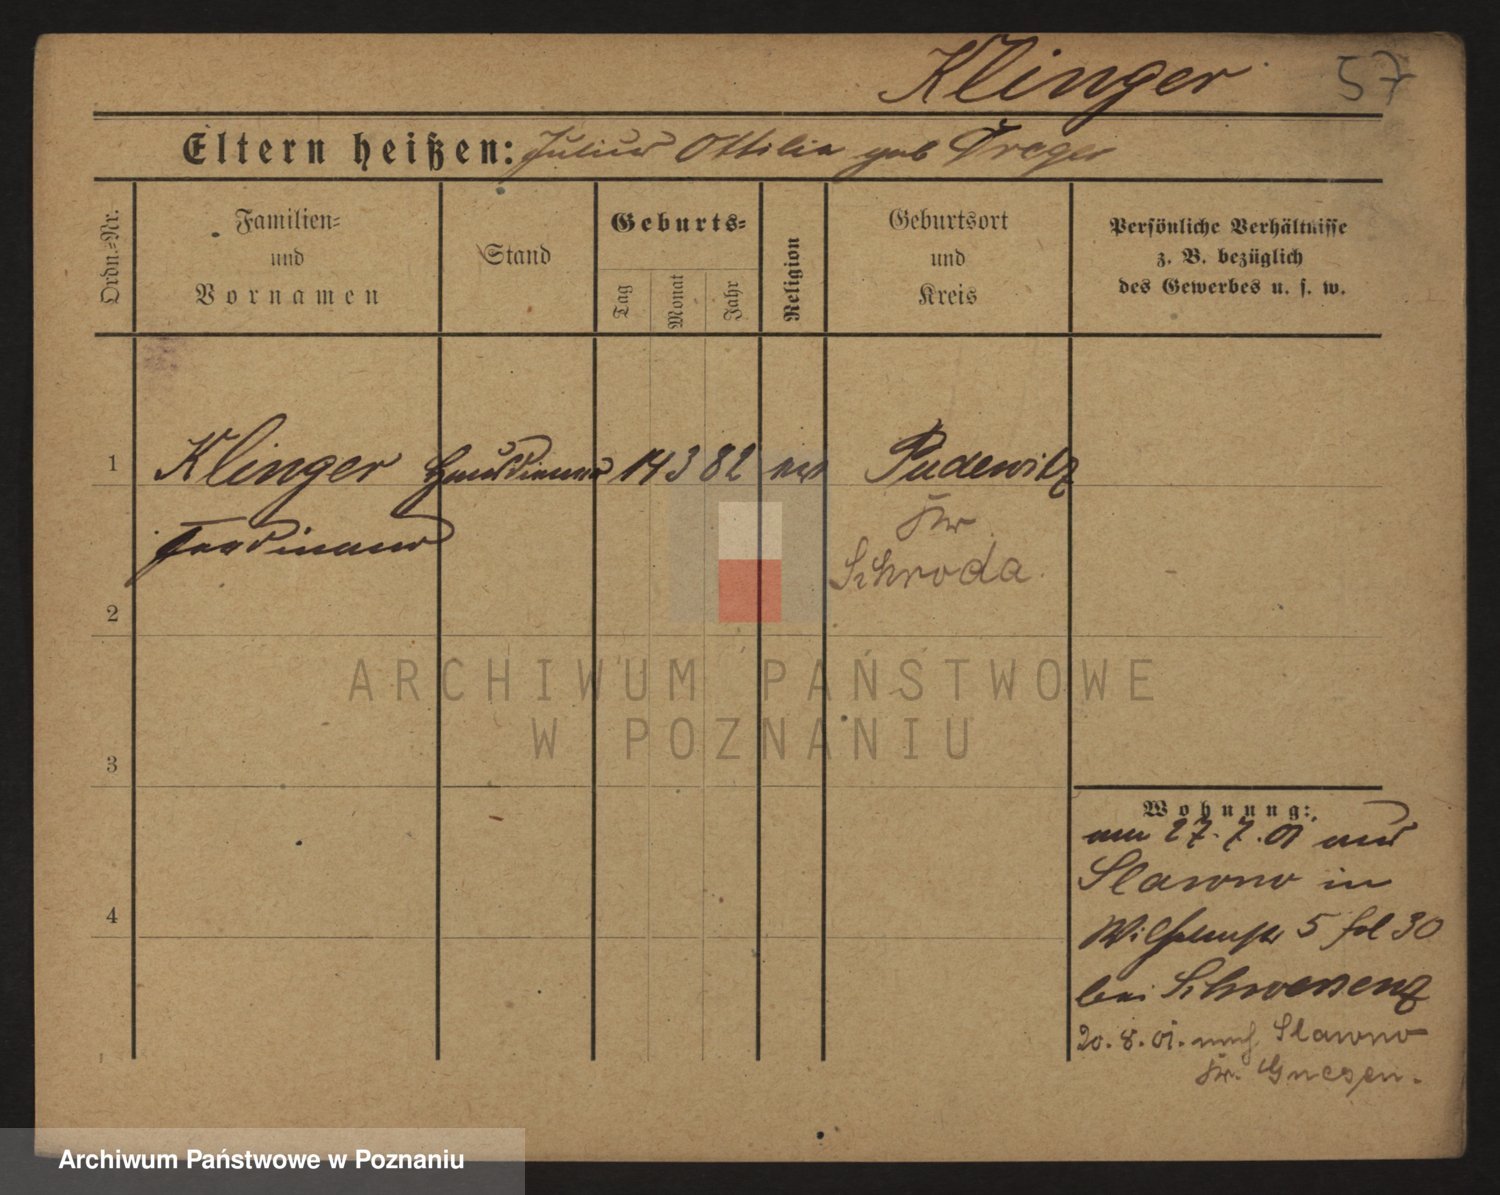 Klinger 57
Eltern heißen: Julius Ottilie geb Dreger
Ordn.-Nr.
Familien-
und
Vornamen
Stand
Geburts-
Tag
Monat
Jahr
Religion
Geburtsort
und
Kreis
Persönliche Verhältnisse
z. B. bezüglich
des Gewerbes u. s. w.
1 Klinger Hausdiener 14 3 82 ev Pudewitz
Ferdinand
Kr.
Schroda
2
3
4
Wohnung:
am 27.7.01 aus
Slawno in
Wilhelmstr 5 fol 30
bei Schwersenz
20.8.01. nach Slawno
Kr. Gnesen.
ARCHIWUM PAŃSTWOWE
W POZNANIU
Archiwum Państwowe w Poznaniu